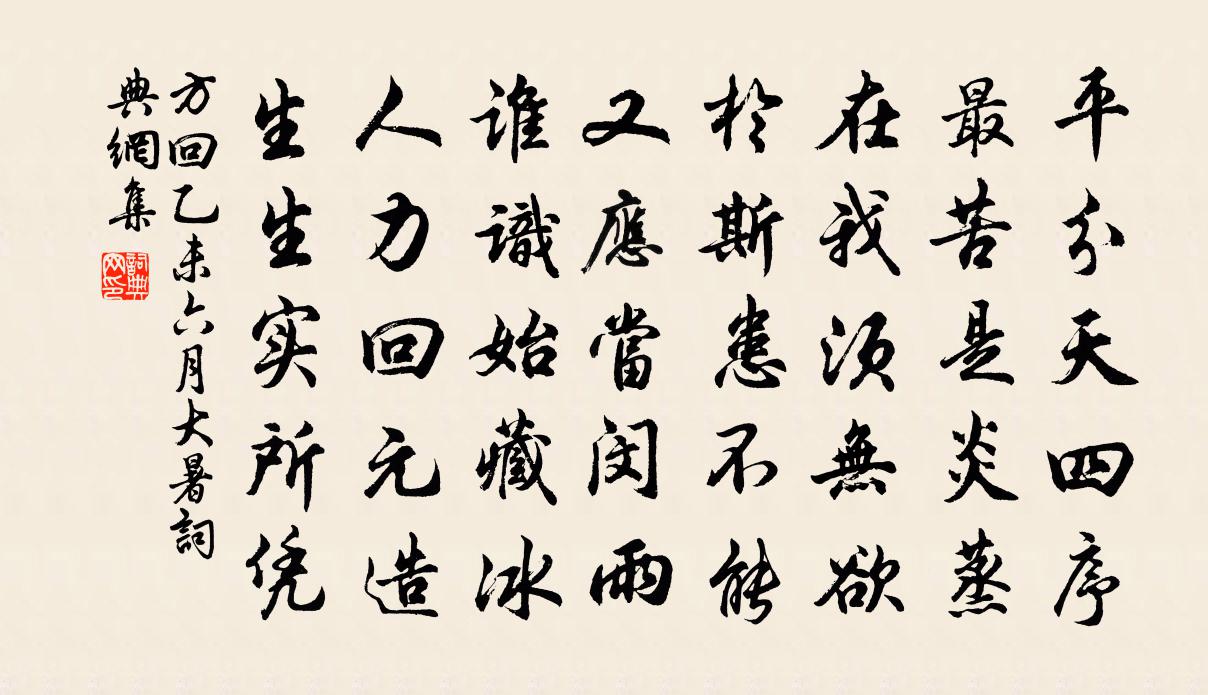 平分天四序
最苦是炎蒸
在我須無欲
於斯患不能
又應當闵雨
誰識始藏冰
人力回元造
生生实所凭
方回乙未六月大暑詞
典網集
詞典
网印